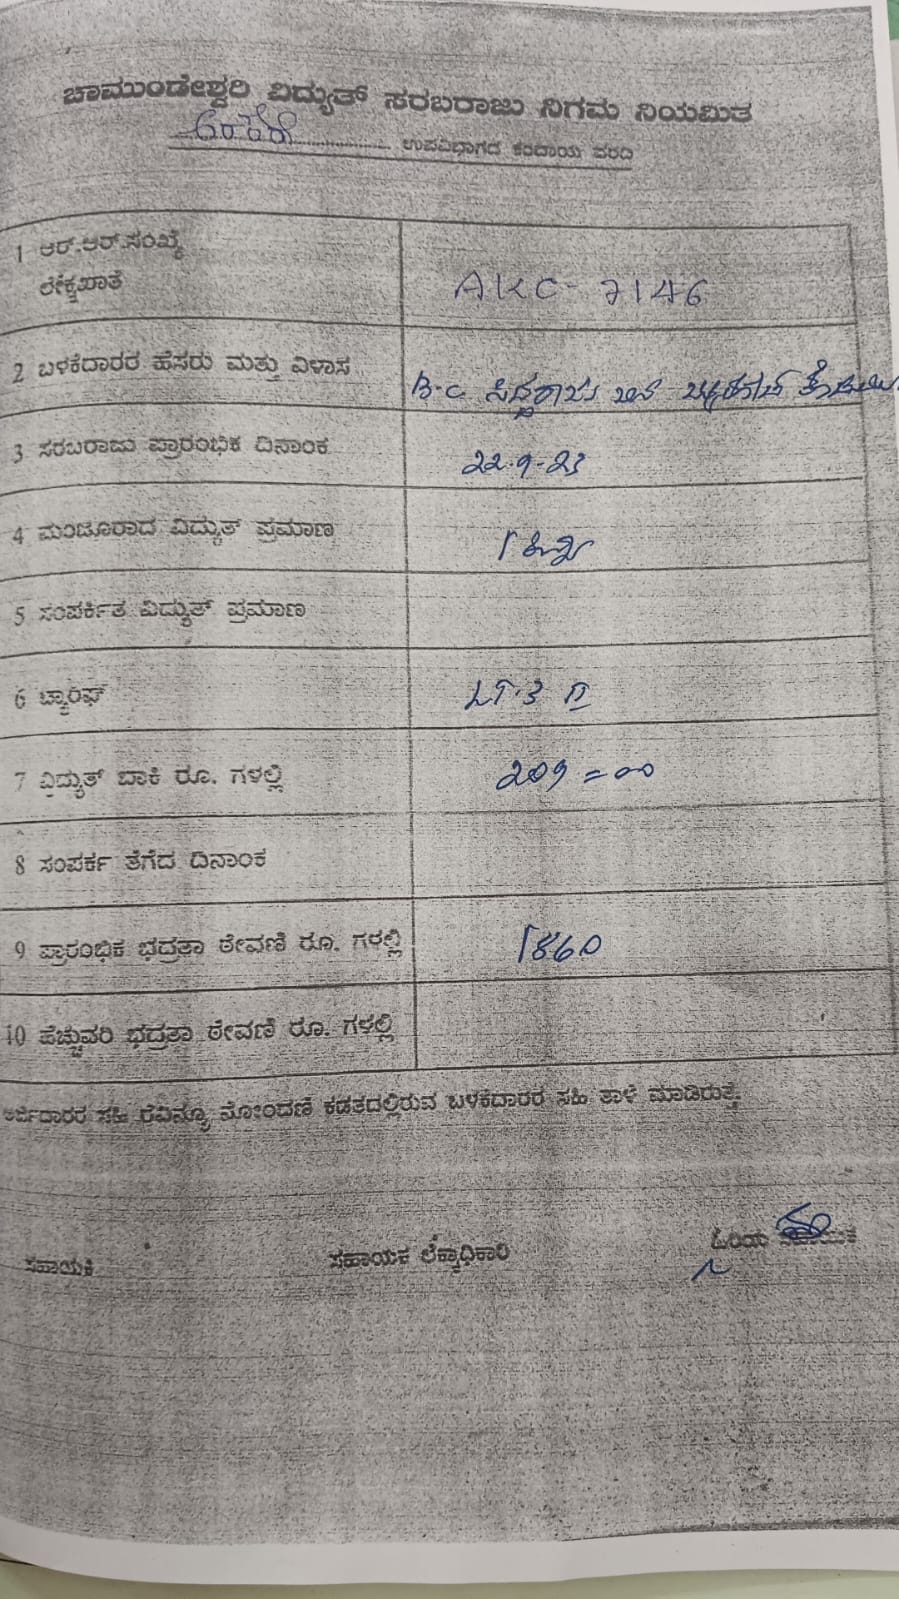 ಚಾಮುಂಡೇಶ್ವರಿ ವಿದ್ಯುತ್ ಸರಬರಾಜು ನಿಗಮ ನಿಯಮಿತ
ಉಪವಿಭಾಗದ ಕಂದಾಯ ವರದಿ
1 ಆರ್.ಆರ್.ಸಂಖ್ಯೆ
ಲೆಕ್ಕಖಾತೆ AKC-7146
2 ಬಳಕೆದಾರರ ಹೆಸರು ಮತ್ತು ವಿಳಾಸ B-C ಸಿದ್ದರಾಜು ಬಿನ್
3 ಸರಬರಾಜು ಪ್ರಾರಂಭಿಕ ದಿನಾಂಕ 22-9-23
4 ಮಂಜೂರಾದ ವಿದ್ಯುತ್ ಪ್ರಮಾಣ 1 ಕಿವ್ಯಾ
5 ಸಂಪರ್ಕಿತ ವಿದ್ಯುತ್ ಪ್ರಮಾಣ
6 ಟ್ಯಾರಿಫ್ LT-3 II
7 ವಿದ್ಯುತ್ ಬಾಕಿ ರೂ. ಗಳಲ್ಲಿ 209=00
8 ಸಂಪರ್ಕ ತೆಗೆದ ದಿನಾಂಕ
9 ಪ್ರಾರಂಭಿಕ ಭದ್ರತಾ ಠೇವಣಿ ರೂ. ಗಳಲ್ಲಿ 1860
10 ಹೆಚ್ಚುವರಿ ಭದ್ರತಾ ಠೇವಣಿ ರೂ. ಗಳಲ್ಲಿ
ಅರ್ಜಿದಾರರ ಸಹಿ ರೆವಿನ್ಯೂ ನೋಂದಣಿ ಕಡತದಲ್ಲಿರುವ ಬಳಕೆದಾರರ ಸಹಿ ತಾಳೆ ಮಾಡಿರುತ್ತೆ.
ಸಹಾಯಕಿ ಸಹಾಯಕ ಲೆಕ್ಕಾಧಿಕಾರಿ ಹಿರಿಯ